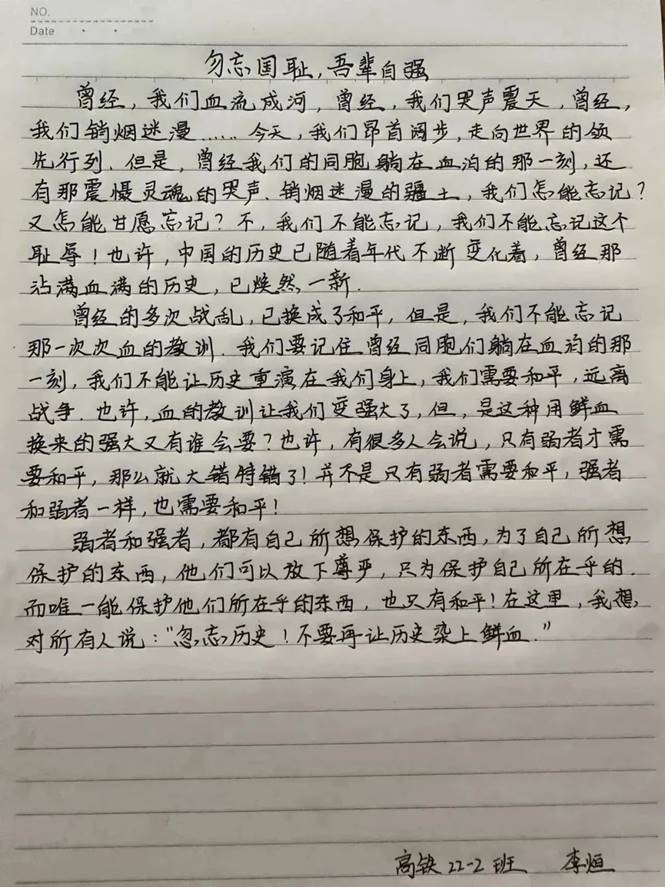 NO.
Date
勿忘国耻,吾辈自强
曾经,我们血流成河,曾经,我们哭声震天,曾经,
我们销烟迷漫......今天,我们昂首阔步,走向世界的领
先行列.但是,曾经我们的同胞躺在血泊的那一刻,还
有那震慑灵魂的哭声.销烟迷漫的疆土,我们怎能忘记?
又怎能甘愿忘记?不,我们不能忘记,我们不能忘记这个
耻辱!也许,中国的历史已随着年代不断变化着,曾经那
沾满血满的历史,已焕然一新.
曾经的多次战乱,已换成了和平,但是,我们不能忘记
那一次次血的教训.我们要记住曾经同胞们躺在血泊的那
一刻,我们不能让历史重演在我们身上,我们需要和平,远离
战争.也许,血的教训让我们变强大了,但,是这种用鲜血
换来的强大又有谁会要?也许,有很多人会说,只有弱者才需
要和平,那么就大错特错了!并不是只有弱者需要和平,强者
和弱者一样,也需要和平!
弱者和强者,都有自己所想保护的东西,为了自己所想
保护的东西,他们可以放下尊严,只为保护自己所在乎的.
而唯一能保护他们所在乎的东西,也只有和平!在这里,我想
对所有人说:"忽忘历史!不要再让历史染上鲜血."
高铁22-2班 李烜